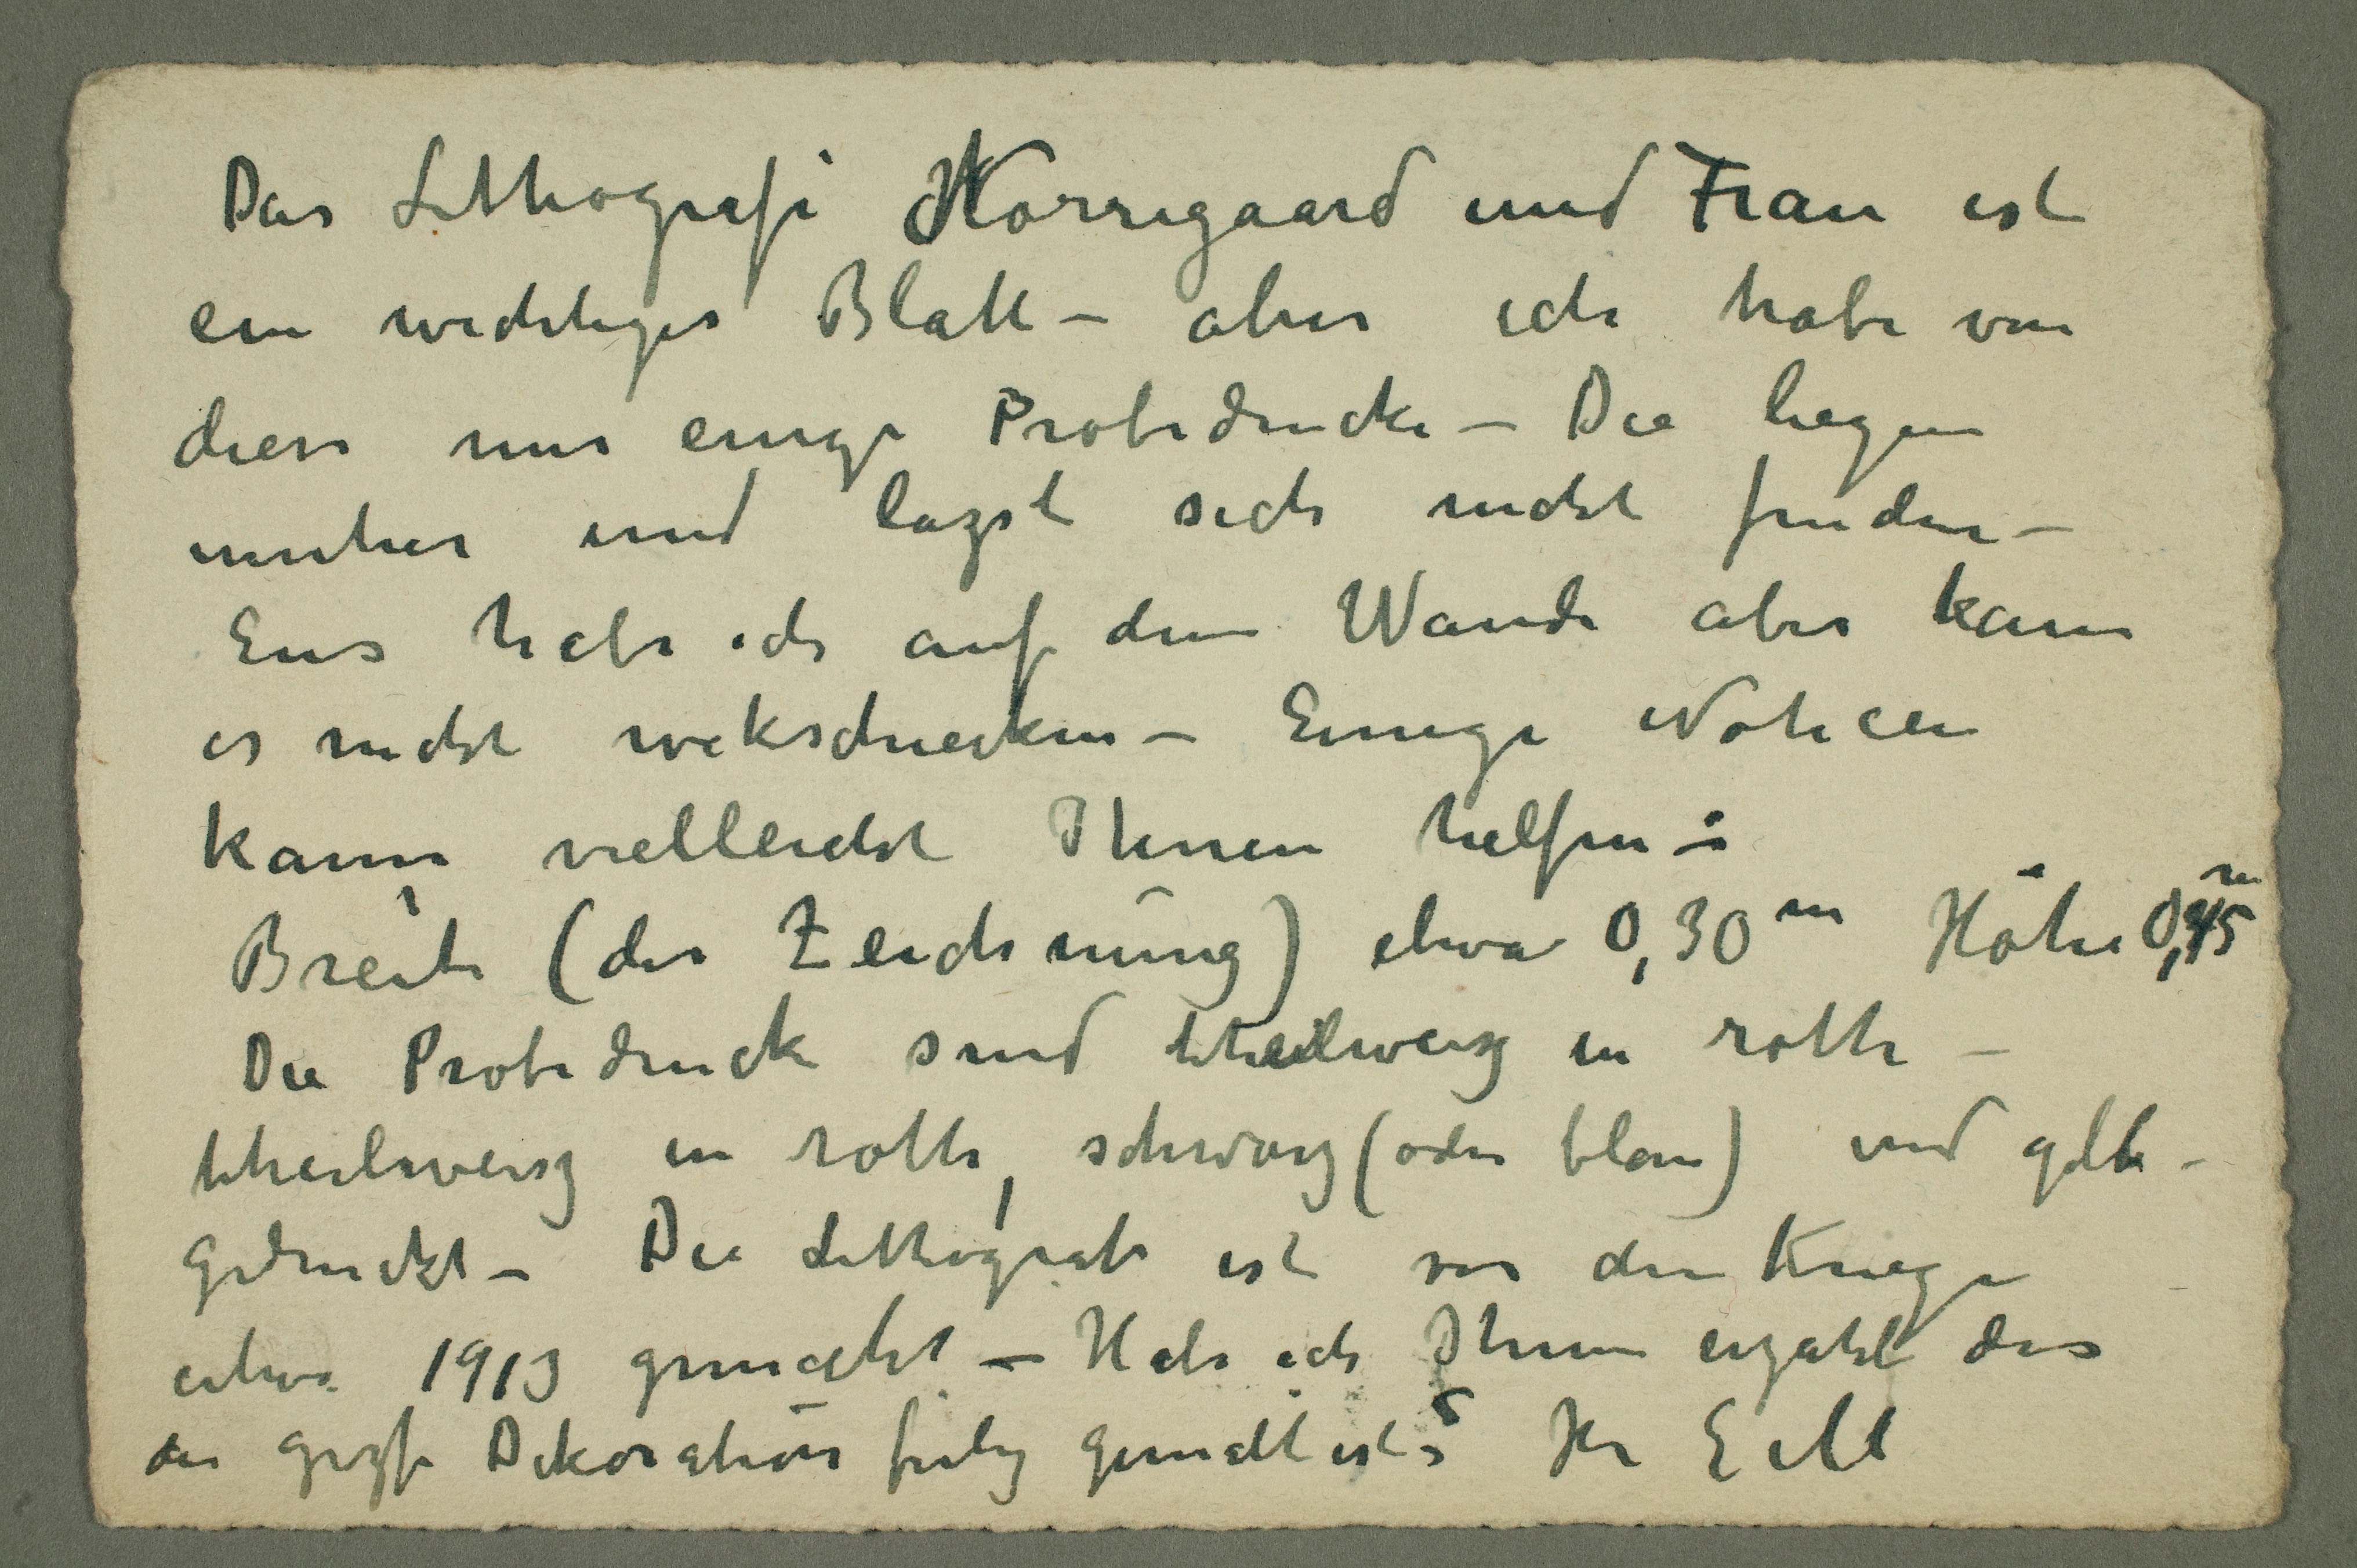 Das Litthografi Nörregaard und Frau ist
ein wichtiges Blatt – aber ich habe von
diese nur einige Probedrucke – Die liegen
umher und lazst sich nicht finden –
Eins habe ich auf dem Wande aber kann
es nicht wekschicken – Einige Noticen
kann vielleicht Ihnen helfen:
Breite (der Zeichnung) etwa 0,30 m Höhe 0,45 m
Die Probedrucke sind theilweisz in roth –
theilweisz in roth, schwarz (oder blau) und gelb –
gedruckt – Die Litthografi ist vor dem Kriege
etwa 1913 gemacht – Habe ich Ihnen erzählt das
die Dekoration fertig gemalt ist? Ihr